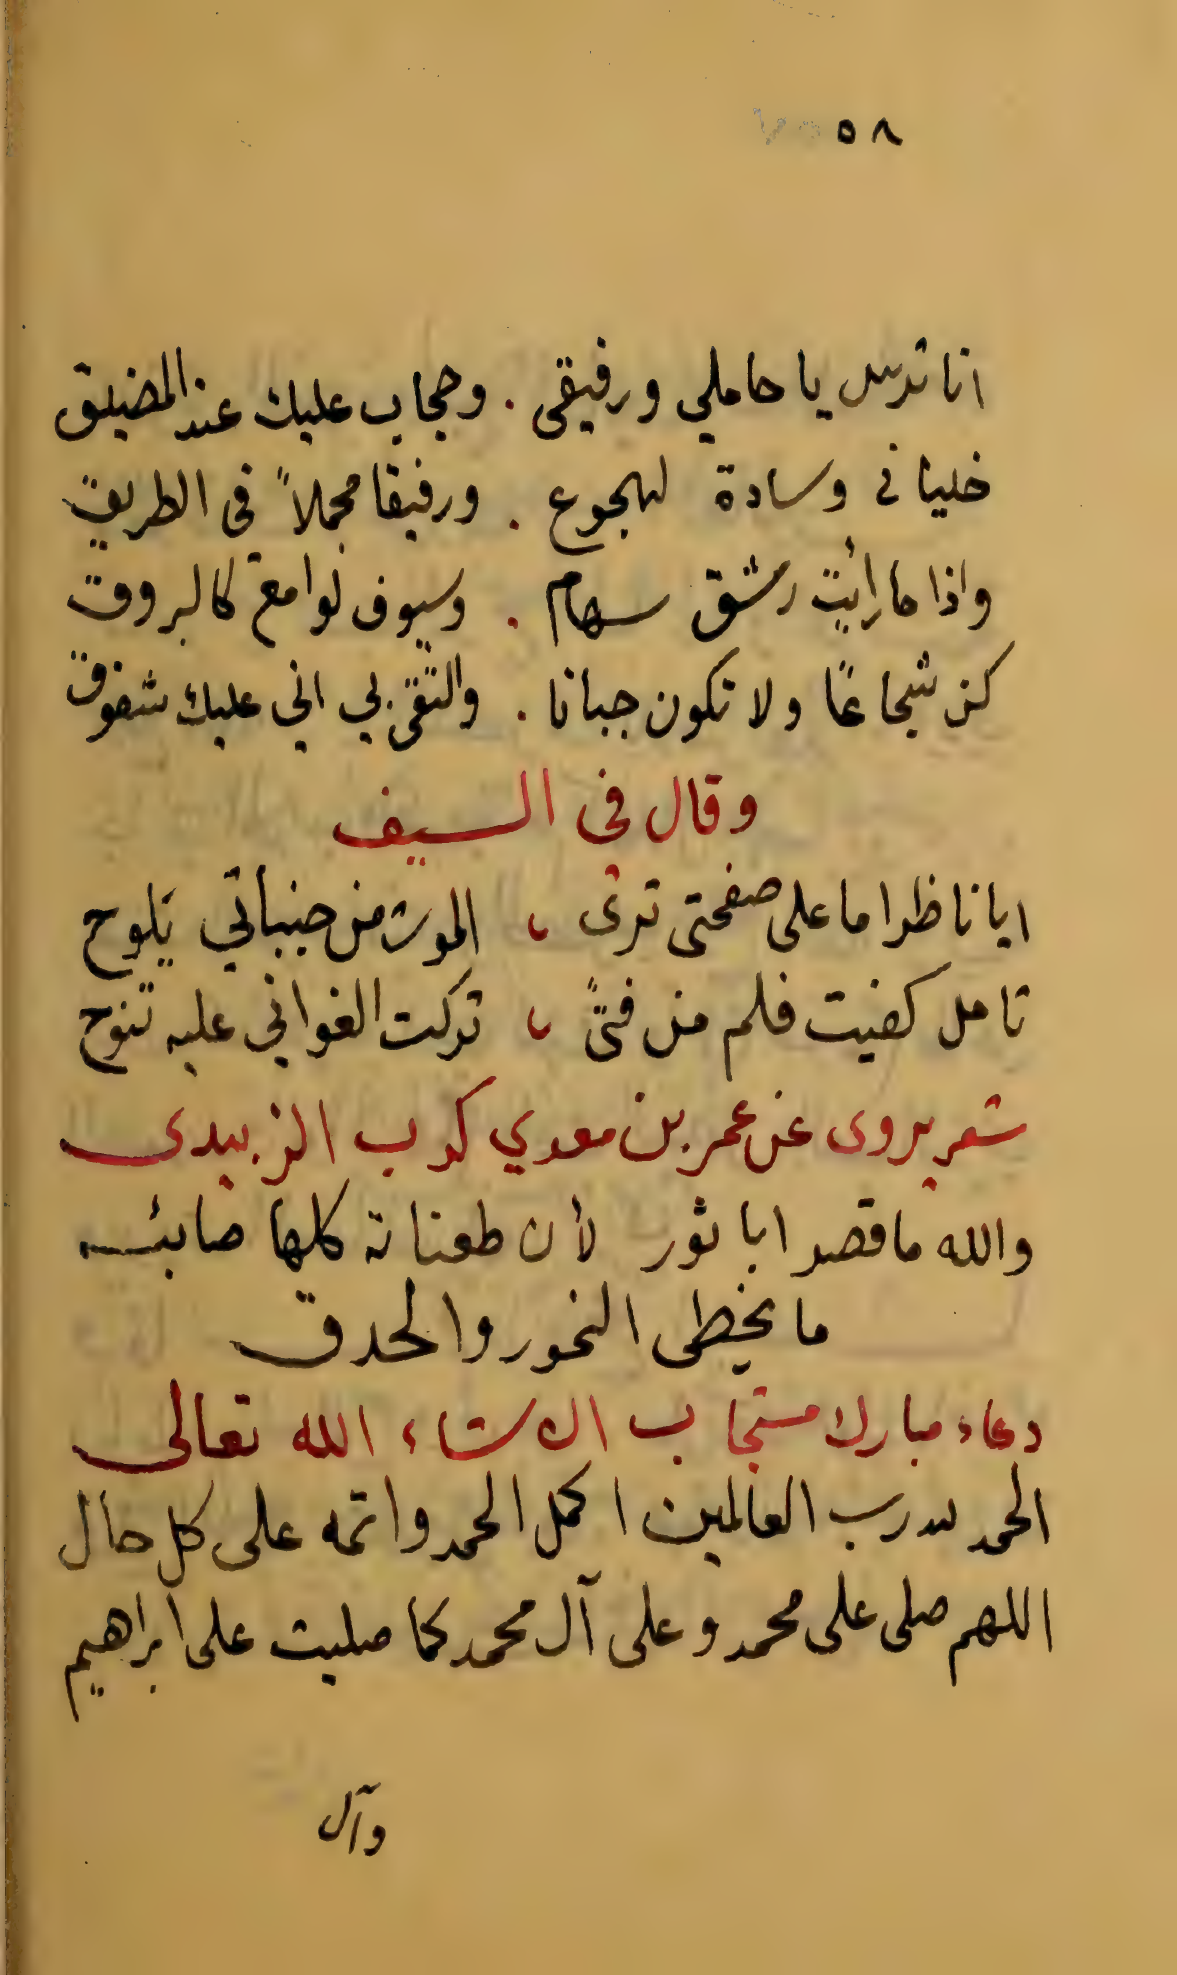 ٥٨
انا ترس يا حاملي ورفيقى . وحجاب عليك عند المضيق
خليانى وسادة لهجوع . ورفيقا مجملاً فى الطريق
واذا ما رأيت رشق سهام . وسيوف لوامع كالبروق
كن شجاعًا ولا تكون جبانا . والتقى بي اني عليك شفوق
وقال فى السيف
ايا ناظرا ما على صفحتى ترى ، الموت من جنباتي يلوح
تامل كفيت فلم من فتىً ، تركت الغواني عليه تنوح
شعر يروى عن عمر بن معدي كرب الزبيدى
والله ما قصر ابا ثور لأن طعناته كلها صائبه
ما يخطى النحور والحدق
دعاء مبارك مستجاب ان شاء الله تعالى
الحمد لله رب العالمين اكمل الحمد واتمه على كل حال
اللهم صلى على محمد وعلى آل محمد كما صليت على ابراهيم
وآل